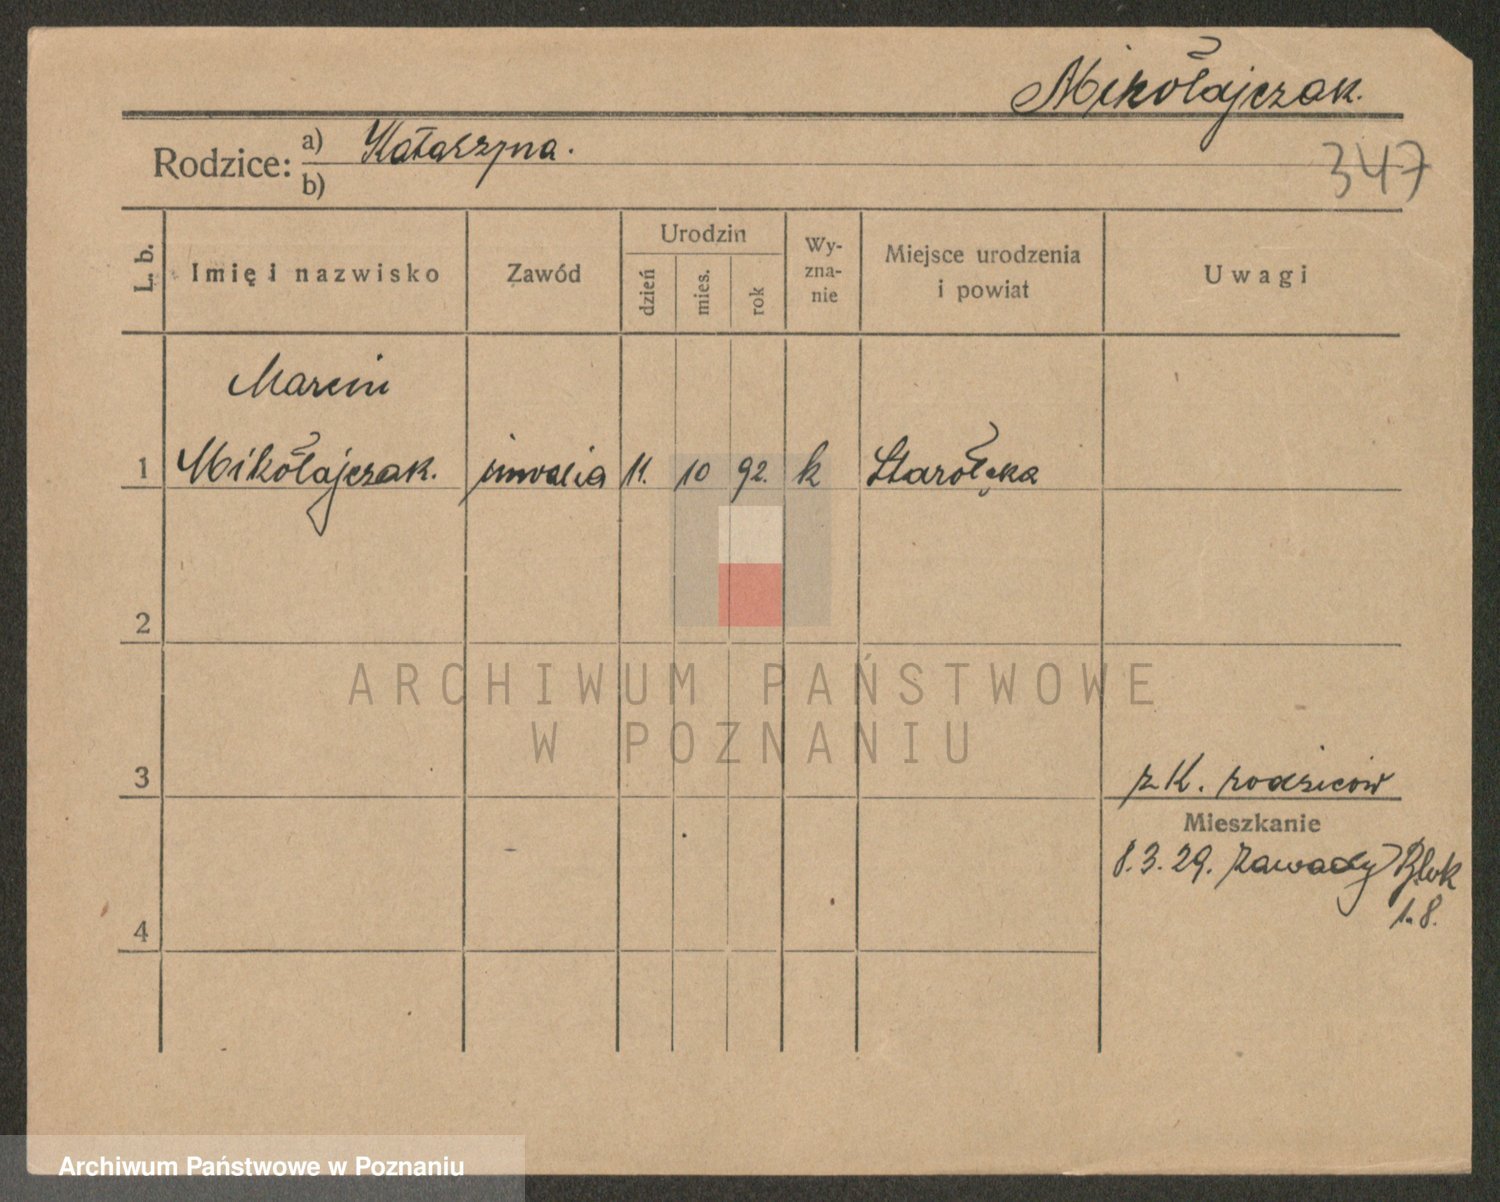 Mikołajczak.
Rodzice: a) Katarzyna.
b)
347
L. b. Imię i nazwisko Zawód Urodzin dzień mies. rok Wy-zna-nie Miejsce urodzenia i powiat Uwagi
Marcin
1 Mikołajczak. 11. 10 92. k Starołęka
2
ARCHIWUM PAŃSTWOWE
W POZNANIU
3
z K. rodziców
Mieszkanie
8.3.29. Zawady Blok
1.8.
4
Archiwum Państwowe w Poznaniu